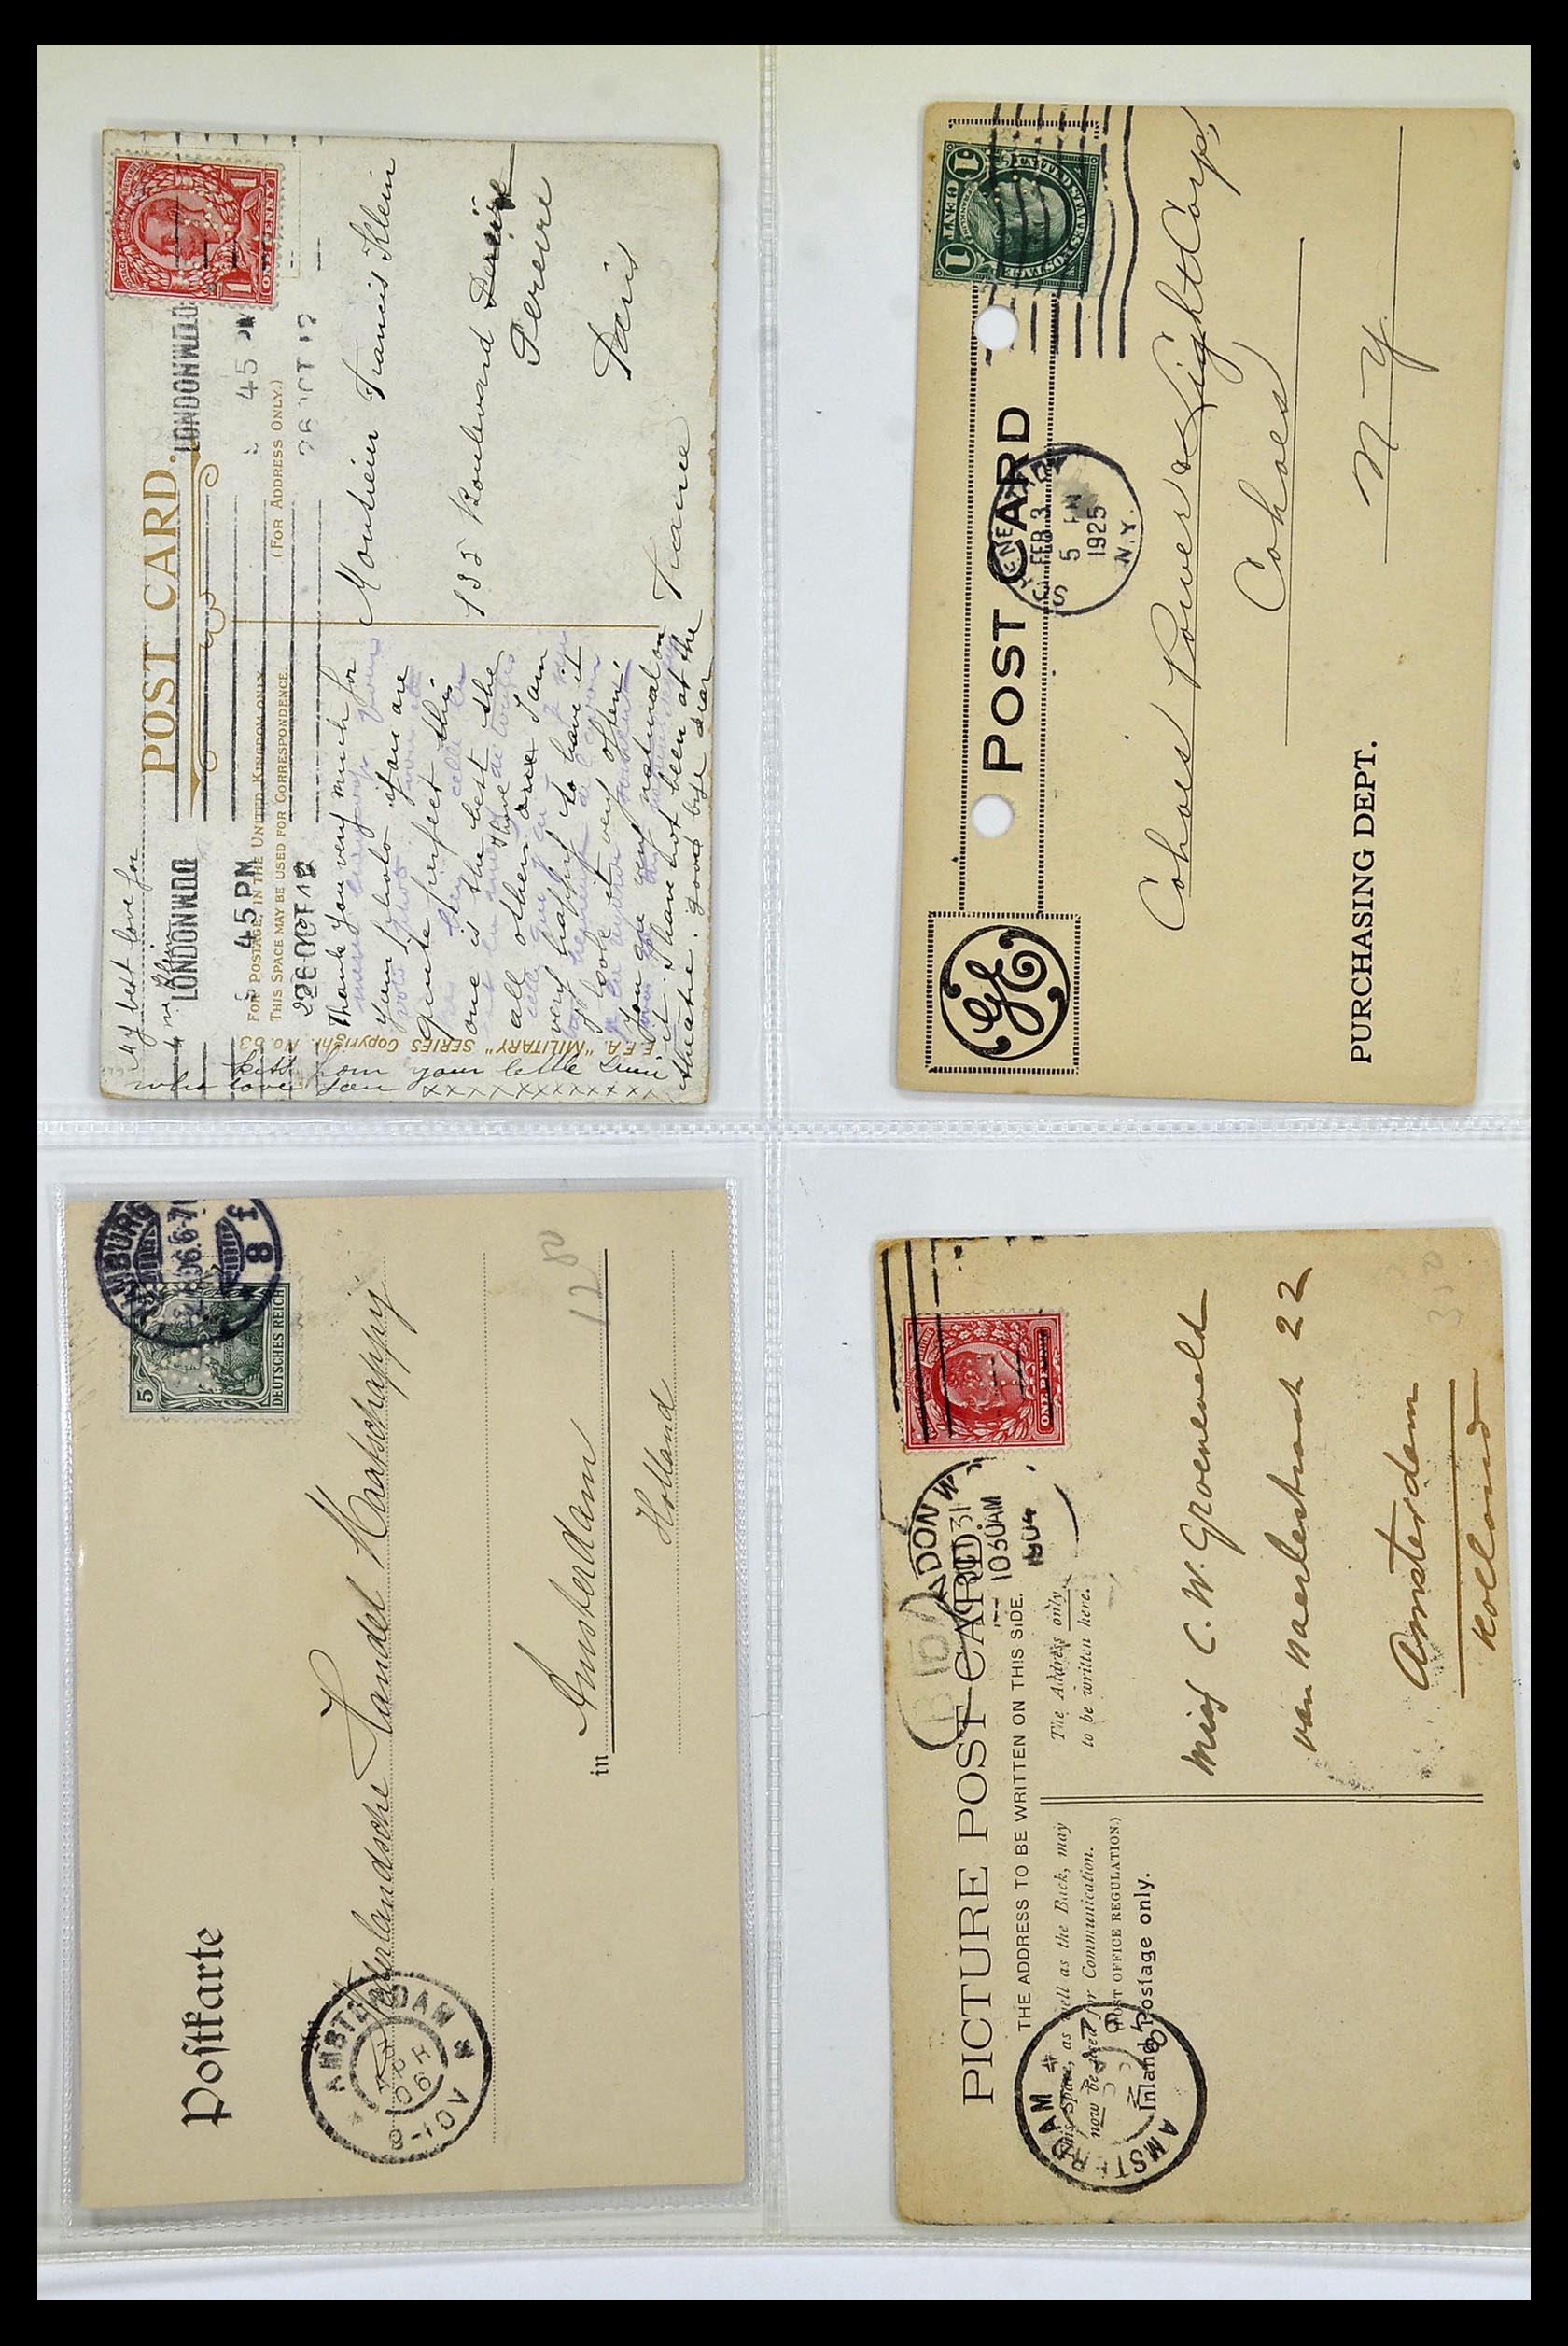 POST CARD.
FOR POSTAGE IN THE UNITED KINGDOM ONLY
THIS SPACE MAY BE USED FOR CORRESPONDENCE
(FOR ADDRESS ONLY.)
ONE PENNY
1 1
LONDON W
LONDON W
45 PM
45 PM
26 OCT 12
26 OCT 12
My best love for
Thank you very much for
your photo, you are
quite perfect this
one is the best the
all others I am
very happy to have it
I look it very often,
you are very natural on
it. I have not been at the
theatre. good bye dear
kiss from your little
who love you xxxxxxxxxxx
E.F.A. "MILITARY" SERIES Copyright. No. 53
Monsieur Francis Klein
Boulevard
Pereire
Paris
France
POST CARD
GE
1 CENT 1
UNITED STATES POSTAGE
SCHENECTADY
FEB 3
5 PM
1925
N.Y.
Cohoes Power & Light Corp,
Cohoes
N.Y.
PURCHASING DEPT.
Postkarte
HAMBURG
8 f
5
DEUTSCHES REICH
Nederlandsche Handel Maatschappij
in Amsterdam
Holland
12 80
AMSTERDAM
8-10V
PICTURE POST CARD.
THE ADDRESS TO BE WRITTEN ON THIS SIDE.
This Space, as well as the Back, may
now be used for Communication.
(POST OFFICE REGULATION.)
Inland Postage only.
The Address only
to be written here.
ONE PENNY
LONDON W
10 30 AM
Miss C. W. Groeneveld
van Baerlestraat 22
Amsterdam
Holland
AMSTERDAM